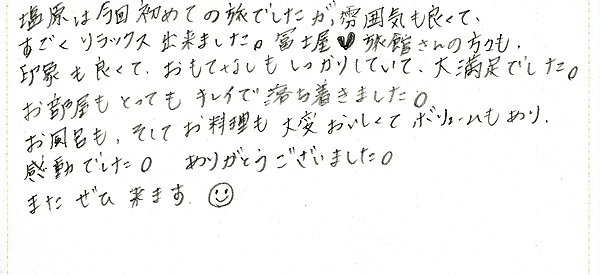 塩原は今回初めての旅でしたが、雰囲気も良くて、
すごくリラックス出来ました。冨士屋♥旅館さんの方々も、
印象も良くて、おもてなしもしっかりしていて、大満足でした。
お部屋もとってもキレイで落ち着きました。
お風呂も、そしてお料理も大変おいしくてボリュームもあり、
感動でした。 ありがとうございました。
またぜひ来ます。☺